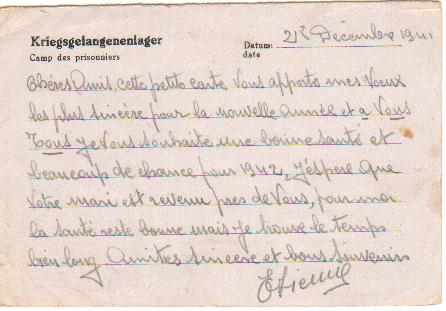 Kriegsgefangenenlager
Camp des prisonniers
Datum: 21 Décembre 1941
date
Chères Amis, cette petite carte Vous apporte mes Voeux
les plus sincère pour la nouvelle année et a Vous
Tous je Vous souhaite une bonne santé et
beaucoup de chance pour 1942, J'éspere que
Votre mari est revenu pres de Vous, pour moi
la santé reste bonne mais je trouve le temps
bien long. Amitiés sincère et bons Souvenirs
Etienne